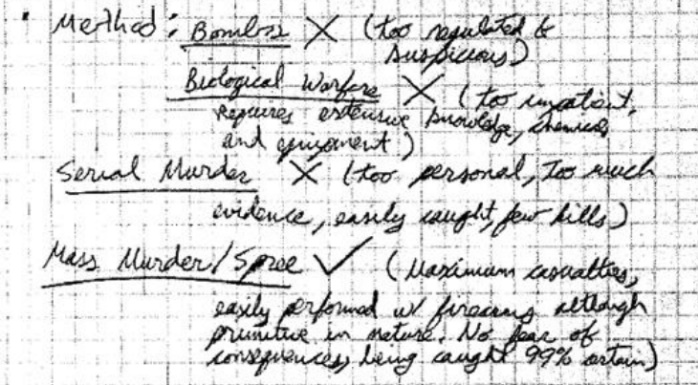 Method: Bombs X (too regulated &
suspicious)
Biological Warfare X (too impatient,
requires extensive knowledge, chemicals,
and equipment)
Serial Murder X (too personal, too much
evidence, easily caught, few kills)
Mass Murder/Spree ✓ (Maximum casualties,
easily performed w/ firearms although
primitive in nature. No fear of
consequences, being caught 99% certain)